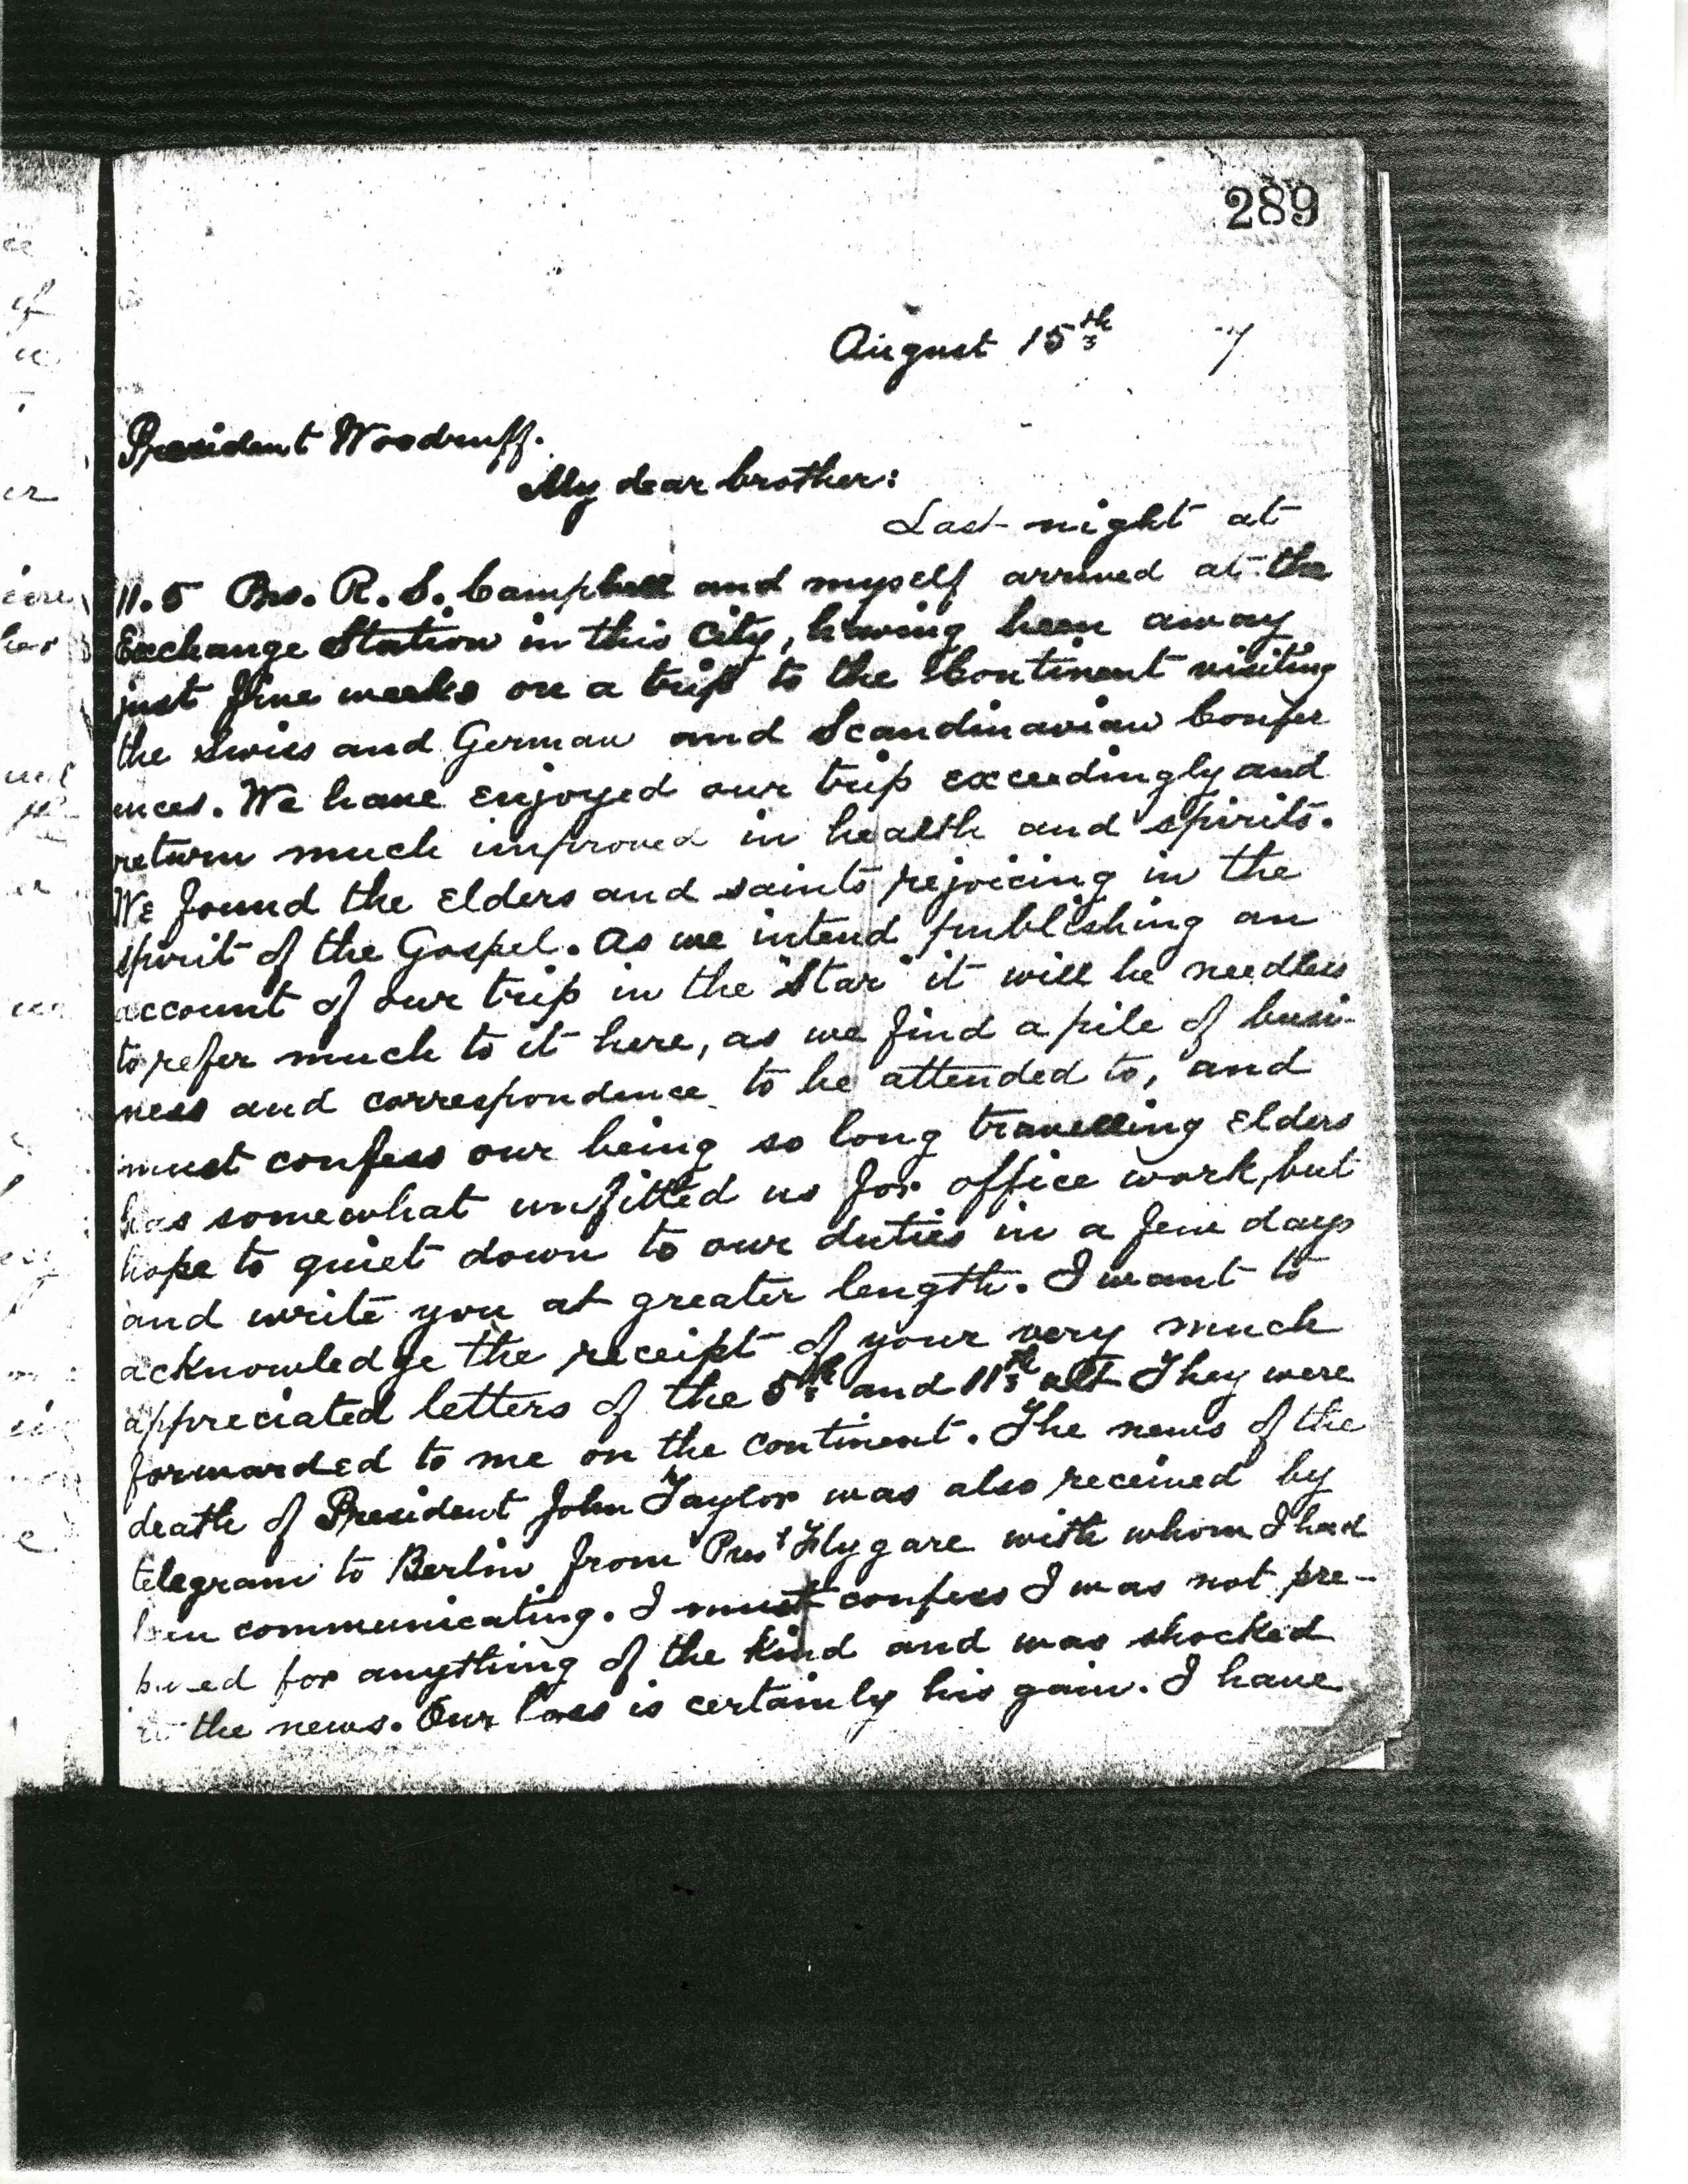 289
August 15th 7
President Woodruff.
My dear brother:
Last night at
11.5 Bro. R. S. Campbell and myself arrived at the
Exchange Station in this City, having been away
just five weeks on a trip to the Continent visiting
the Swiss and German and Scandinavian Confer
ences. We have enjoyed our trip exceedingly and
return much improved in health and spirits.
We found the Elders and saints rejoicing in the
spirit of the Gospel. As we intend publishing an
account of our trip in the "Star" it will be needless
to refer much to it here, as we find a pile of busi-
ness and correspondence to be attended to, and
must confess our being so long travelling Elders
has somewhat unfitted us for office work, but
hope to quiet down to our duties in a few days
and write you at greater length. I want to
acknowledge the receipt of your very much
appreciated letters of the 5th and 11th ult. They were
forwarded to me on the continent. The news of the
death of President John Taylor was also received by
telegram to Berlin from Prest Flygare with whom I had
been communicating. I must confess I was not pre-
pared for anything of the kind and was shocked
at the news. Our loss is certainly his gain. I have